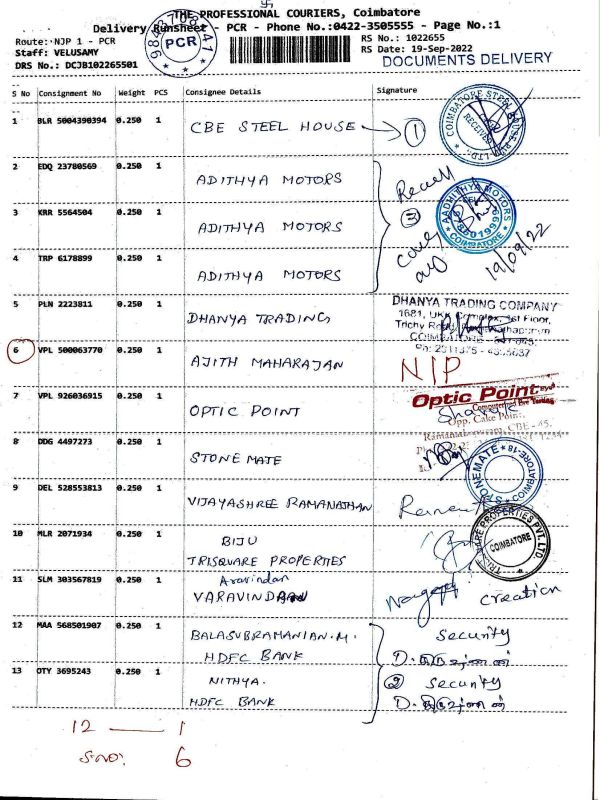 THE PROFESSIONAL COURIERS, Coimbatore
Delivery Runsheet - PCR - Phone No.:0422-3505555 - Page No.:1
Route: NJP 1 - PCR
RS No.: 1022655
Staff: VELUSAMY
RS Date: 19-Sep-2022
DRS No.: DCJB102265501
DOCUMENTS DELIVERY
PCR
S No Consignment No Weight PCS Consignee Details Signature
1 BLR 5004390394 0.250 1 CBE STEEL HOUSE 1
COIMBATORE STEEL HOUSE
RECEIVED
2 EDQ 23780569 0.250 1 ADITHYA MOTORS
3 KRR 5564504 0.250 1 ADITHYA MOTORS 3
AADHITHYA MOTORS
COIMBATORE
4 TRP 6178899 0.250 1 ADITHYA MOTORS 19/09/22
5 PLN 2223811 0.250 1 DHANYA TRADING
DHANYA TRADING COMPANY
1681, UKK Complex, 1st Floor,
Trichy Road,
COIMBATORE
6 VPL 500063770 0.250 1 AJITH MAHARAJAN NIP
7 VPL 926036915 0.250 1 OPTIC POINT
Optic Point
Computerized Eye Testing
Opp. Cake Point,
Ramanathapuram, CBE - 45.
8 DDG 4497273 0.250 1 STONE MATE
STONEMATE COIMBATORE-18
9 DEL 528553813 0.250 1 VIJAYASHREE RAMANATHAN
10 MLR 2071934 0.250 1 BIJU
TRISQUARE PROPERTIES
TRISQUARE PROPERTIES PVT. LTD.
COIMBATORE
11 SLM 303567819 0.250 1 Aravindan
VARAVINDAN creation
12 MAA 568501907 0.250 1 BALASUBRAMANIAN.M. security
HDFC BANK
13 OTY 3695243 0.250 1 NITHYA. 2 security
HDFC BANK
12 — 1
S.NO: 6